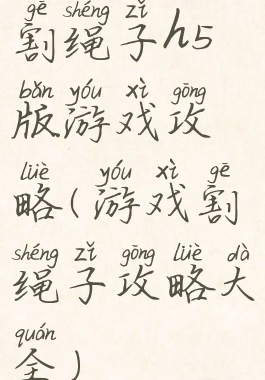 gē shéng zǐ
割绳子h5
bǎn yóu xì gōng
版游戏攻
lüè yóu xì gē
略(游戏割
shéng zǐ gōng lüè dà
绳子攻略大
quán
全)